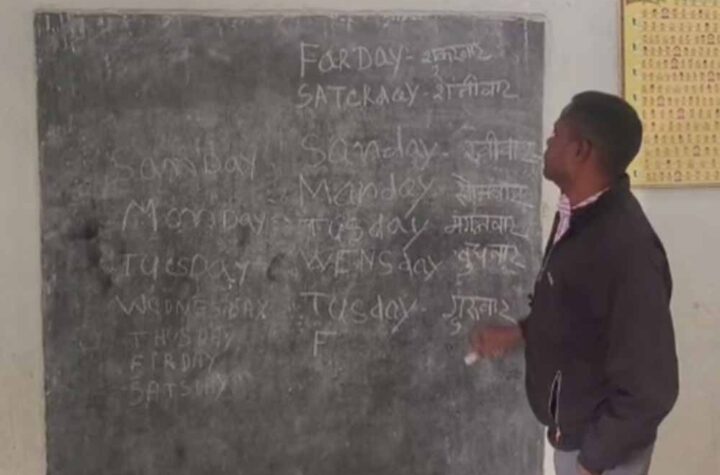 FarDAY - शुकरवार
SATCRday - शनीवार
Sanday - रवीवार
Manday - सोमवार
Tusday मगलवार
WENSday बुधवार
Tusday - गुरुवार
F
SamDAY
MonDAY
TUESDAY
WEDNESDAY
THUSDAY
FIRDAY
SATSDAY